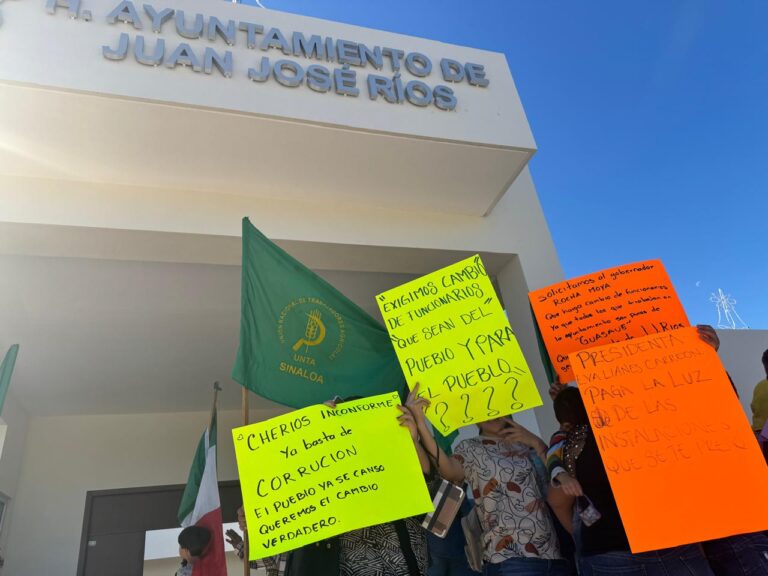 H. AYUNTAMIENTO DE
JUAN JOSÉ RÍOS
UNIÓN NACIONAL DE TRABAJADORES AGRÍCOLAS
UNTA
SINALOA
"EXIGIMOS CAMBIO
DE FUNCIONARIOS
"QUE SEAN DEL
PUEBLO Y PARA
EL PUEBLO"
????
"CHERIOS INCONFORME"
Ya basta de
CORRUCION
El PUEBLO YA SE CANSO
QUEREMOS EL CAMBIO
VERDADERO.
Solicitamos al gobernador
ROCHA MOYA
Que haya cambio de funcionarios
ya que todos los que trabajan en
el ayuntamiento son puros de
"GUASAVE"
de JJ Rios
PRESIDENTA
CARREON
PAGA LA LUZ
DE LAS
QUE SE TE